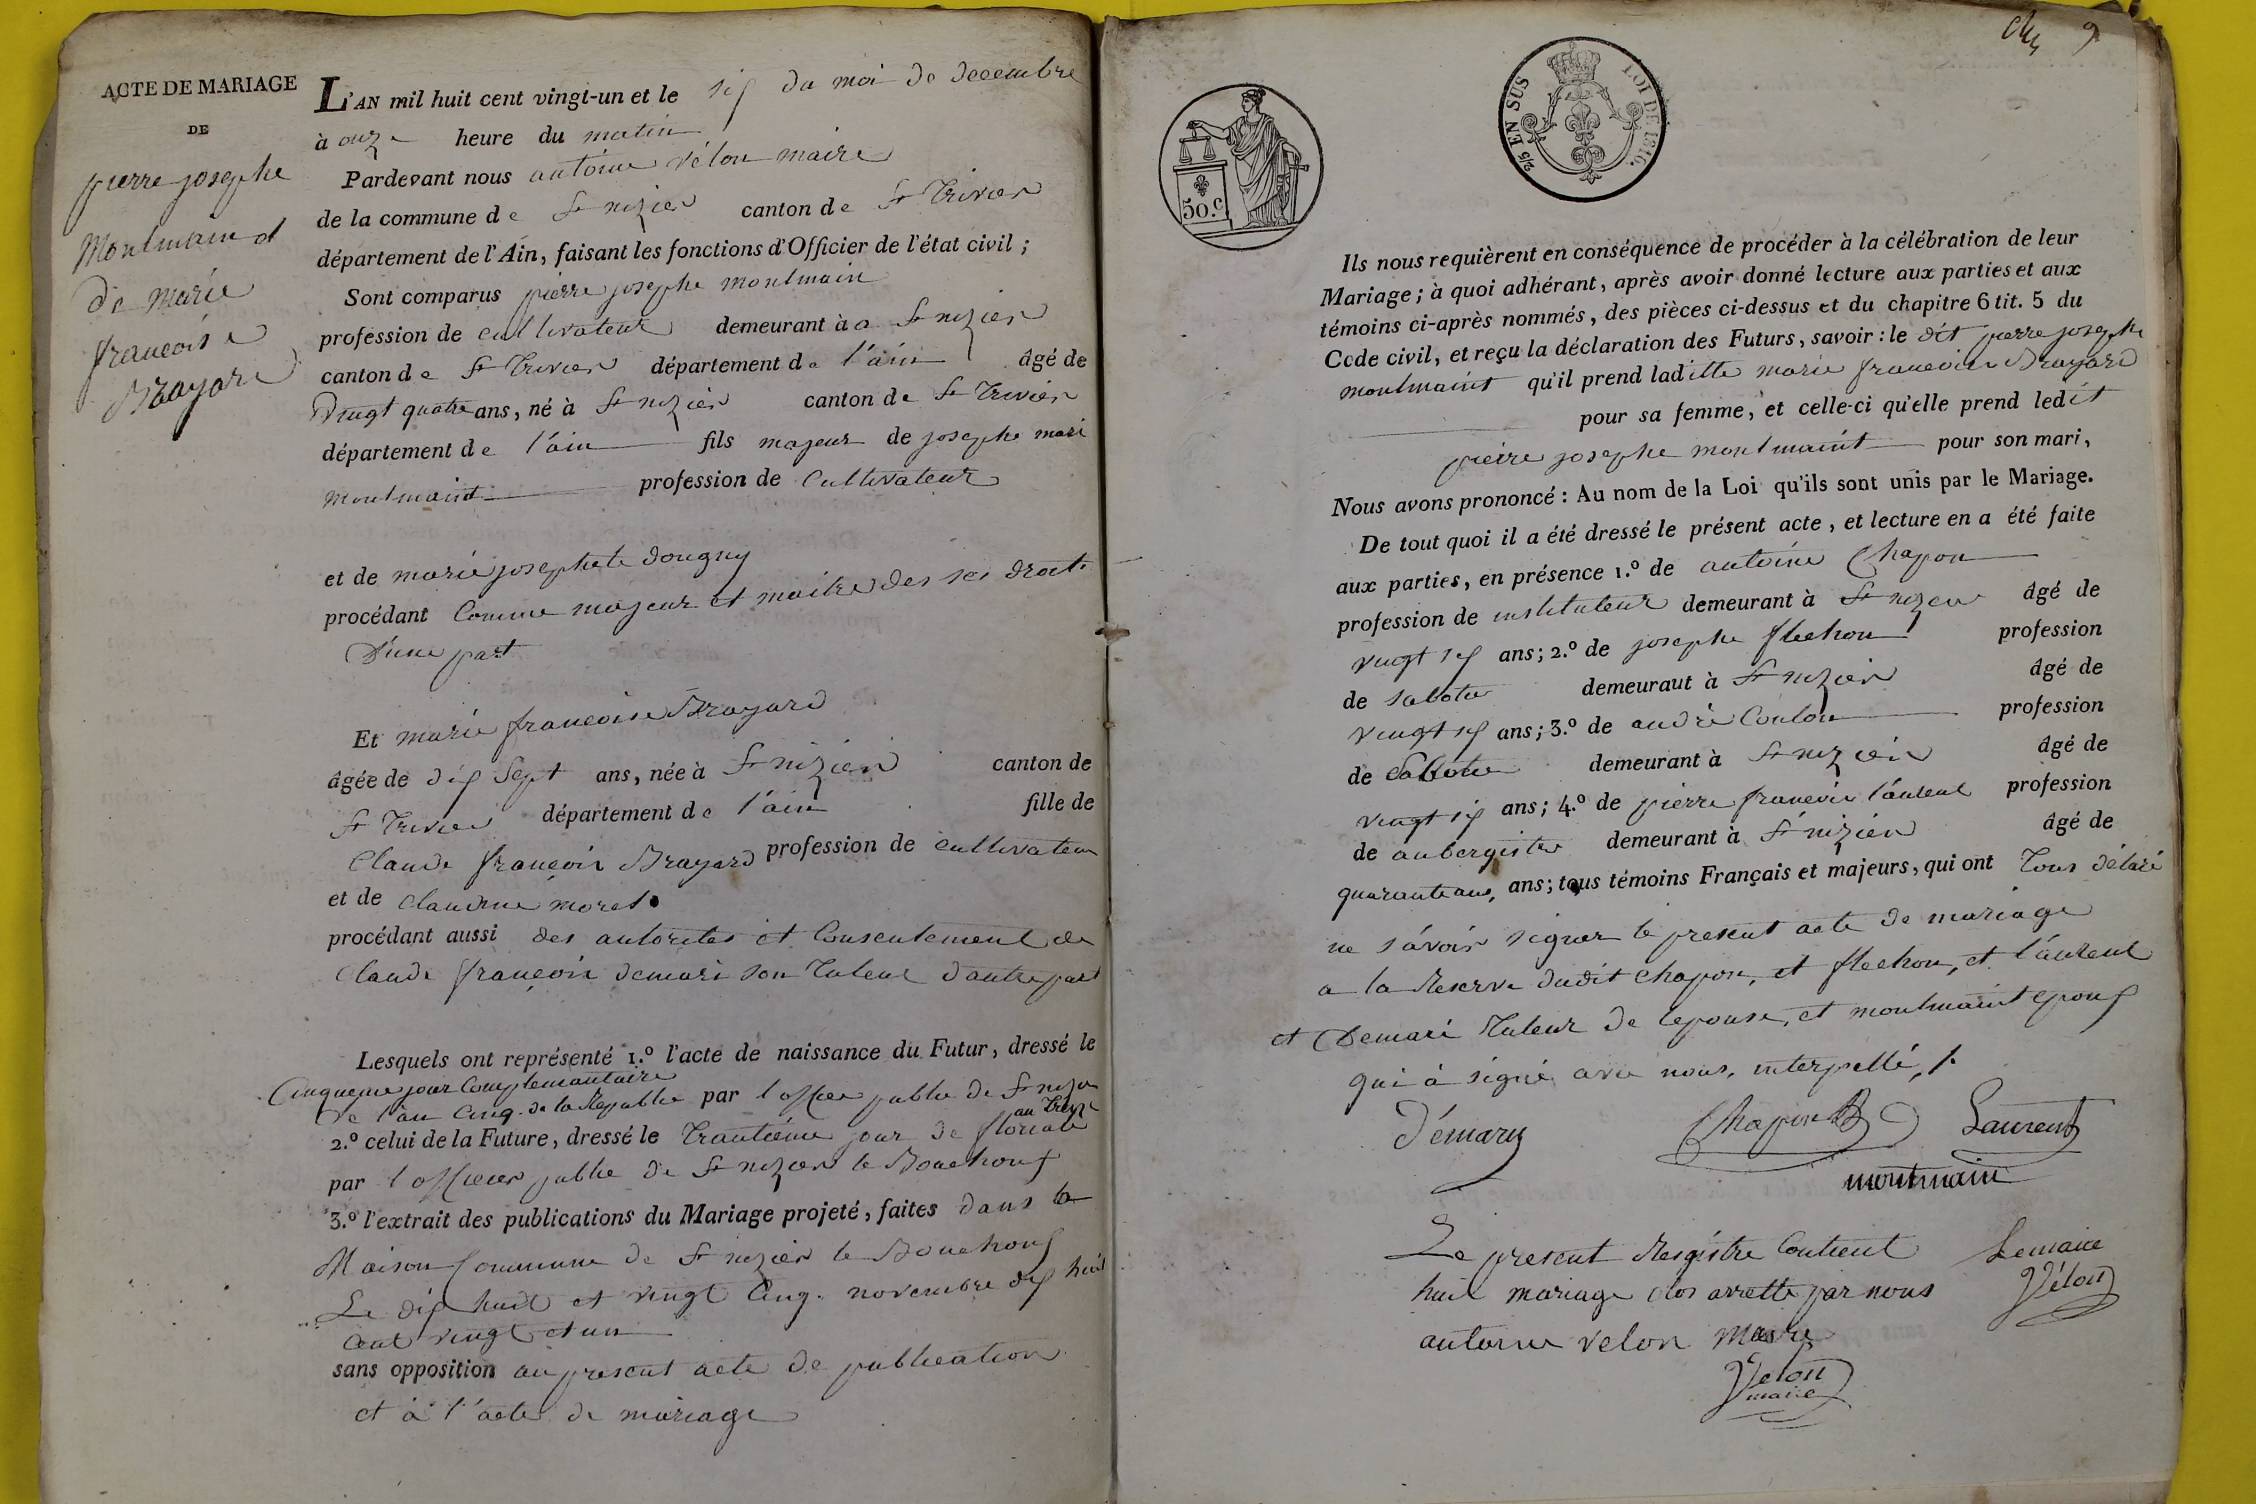 ACTE DE MARIAGE
DE
pierre josephe
Montmain et
de marie
francoise
Brayard
L'AN mil huit cent vingt-un et le six du moi de decembre
à onze heure du matin
Pardevant nous antoine vélon maire
de la commune de St nizier canton de St Trivier
département de l'Ain, faisant les fonctions d'Officier de l'état civil ;
Sont comparus pierre josephe montmain
profession de cultivateur demeurant à a St nizier
canton de St Trivier département de l'ain âgé de
vingt quatre ans, né à St nizier canton de St Trivier
département de l'ain fils majeur de josephe mari
montmaint profession de Cultivateur
et de marie josephete dougny
procédant Comme majeur et maitre des ses droits
D'une part
Et marie francoise Brayard
âgée de dix Sept ans, née à St nizier canton de
St Trivier département de l'ain fille de
Claude françois Brayard profession de cultivateur
et de claudine morel
procédant aussi des autorites et Consentement de
Claude françois demari son Tuteur d'autre part
Lesquels ont représenté 1.º l'acte de naissance du Futur, dressé le
Cinqueme jour Complemantaire
de l'an Cinq de la Republie par l officier publie de St nizier
2.º celui de la Future, dressé le Trantième jour de floreale an Treze
par l officier publie de St nizier le Bouchoux
3.º l'extrait des publications du Mariage projeté, faites dans la
Maison Commune de St nizier le Bouchoux
Le dix huit et vingt Cinq novembre dix huit
Cent vingt et un
sans opposition au present acte de publication
et à l'acte de mariage
9
50.c
2/5 EN SUS LOI DE 1816.
Ils nous requièrent en conséquence de procéder à la célébration de leur
Mariage ; à quoi adhérant, après avoir donné lecture aux parties et aux
témoins ci-après nommés, des pièces ci-dessus et du chapitre 6 tit. 5 du
Code civil, et reçu la déclaration des Futurs, savoir : le dit pierre josephe
montmaint qu'il prend laditte marie francoise Brayard
pour sa femme, et celle-ci qu'elle prend ledit
pierre josephe montmaint pour son mari,
Nous avons prononcé : Au nom de la Loi qu'ils sont unis par le Mariage.
De tout quoi il a été dressé le présent acte, et lecture en a été faite
aux parties, en présence 1.º de antoine Chapon
profession de instituteur demeurant à St nizier âgé de
vingt six ans ; 2.º de josephe flechon profession
de sabotie demeuraut à St nizier âgé de
vingt six ans ; 3.º de andré Coulon profession
de Sabotie demeurant à St nizier âgé de
vingt six ans ; 4.º de pierre francois l'aurent profession
de aubergiste demeurant à St nizier âgé de
quarante ans, ans ; tous témoins Français et majeurs, qui ont Tous délaré
ne sávoir signer le present acte de mariage
a la Reserve dudit Chapon, et flechon, et l'aurent
et Demari Tuteur de lepouse, et montmaint epoux
qui à signé avec nous, interpellé, /.
Démary Chapon Laurent
montmain
Le present Resgistre Contient
huit mariage clos arretté par nous
antoine velon maire
Velon
maire
Lemaire
Vélon